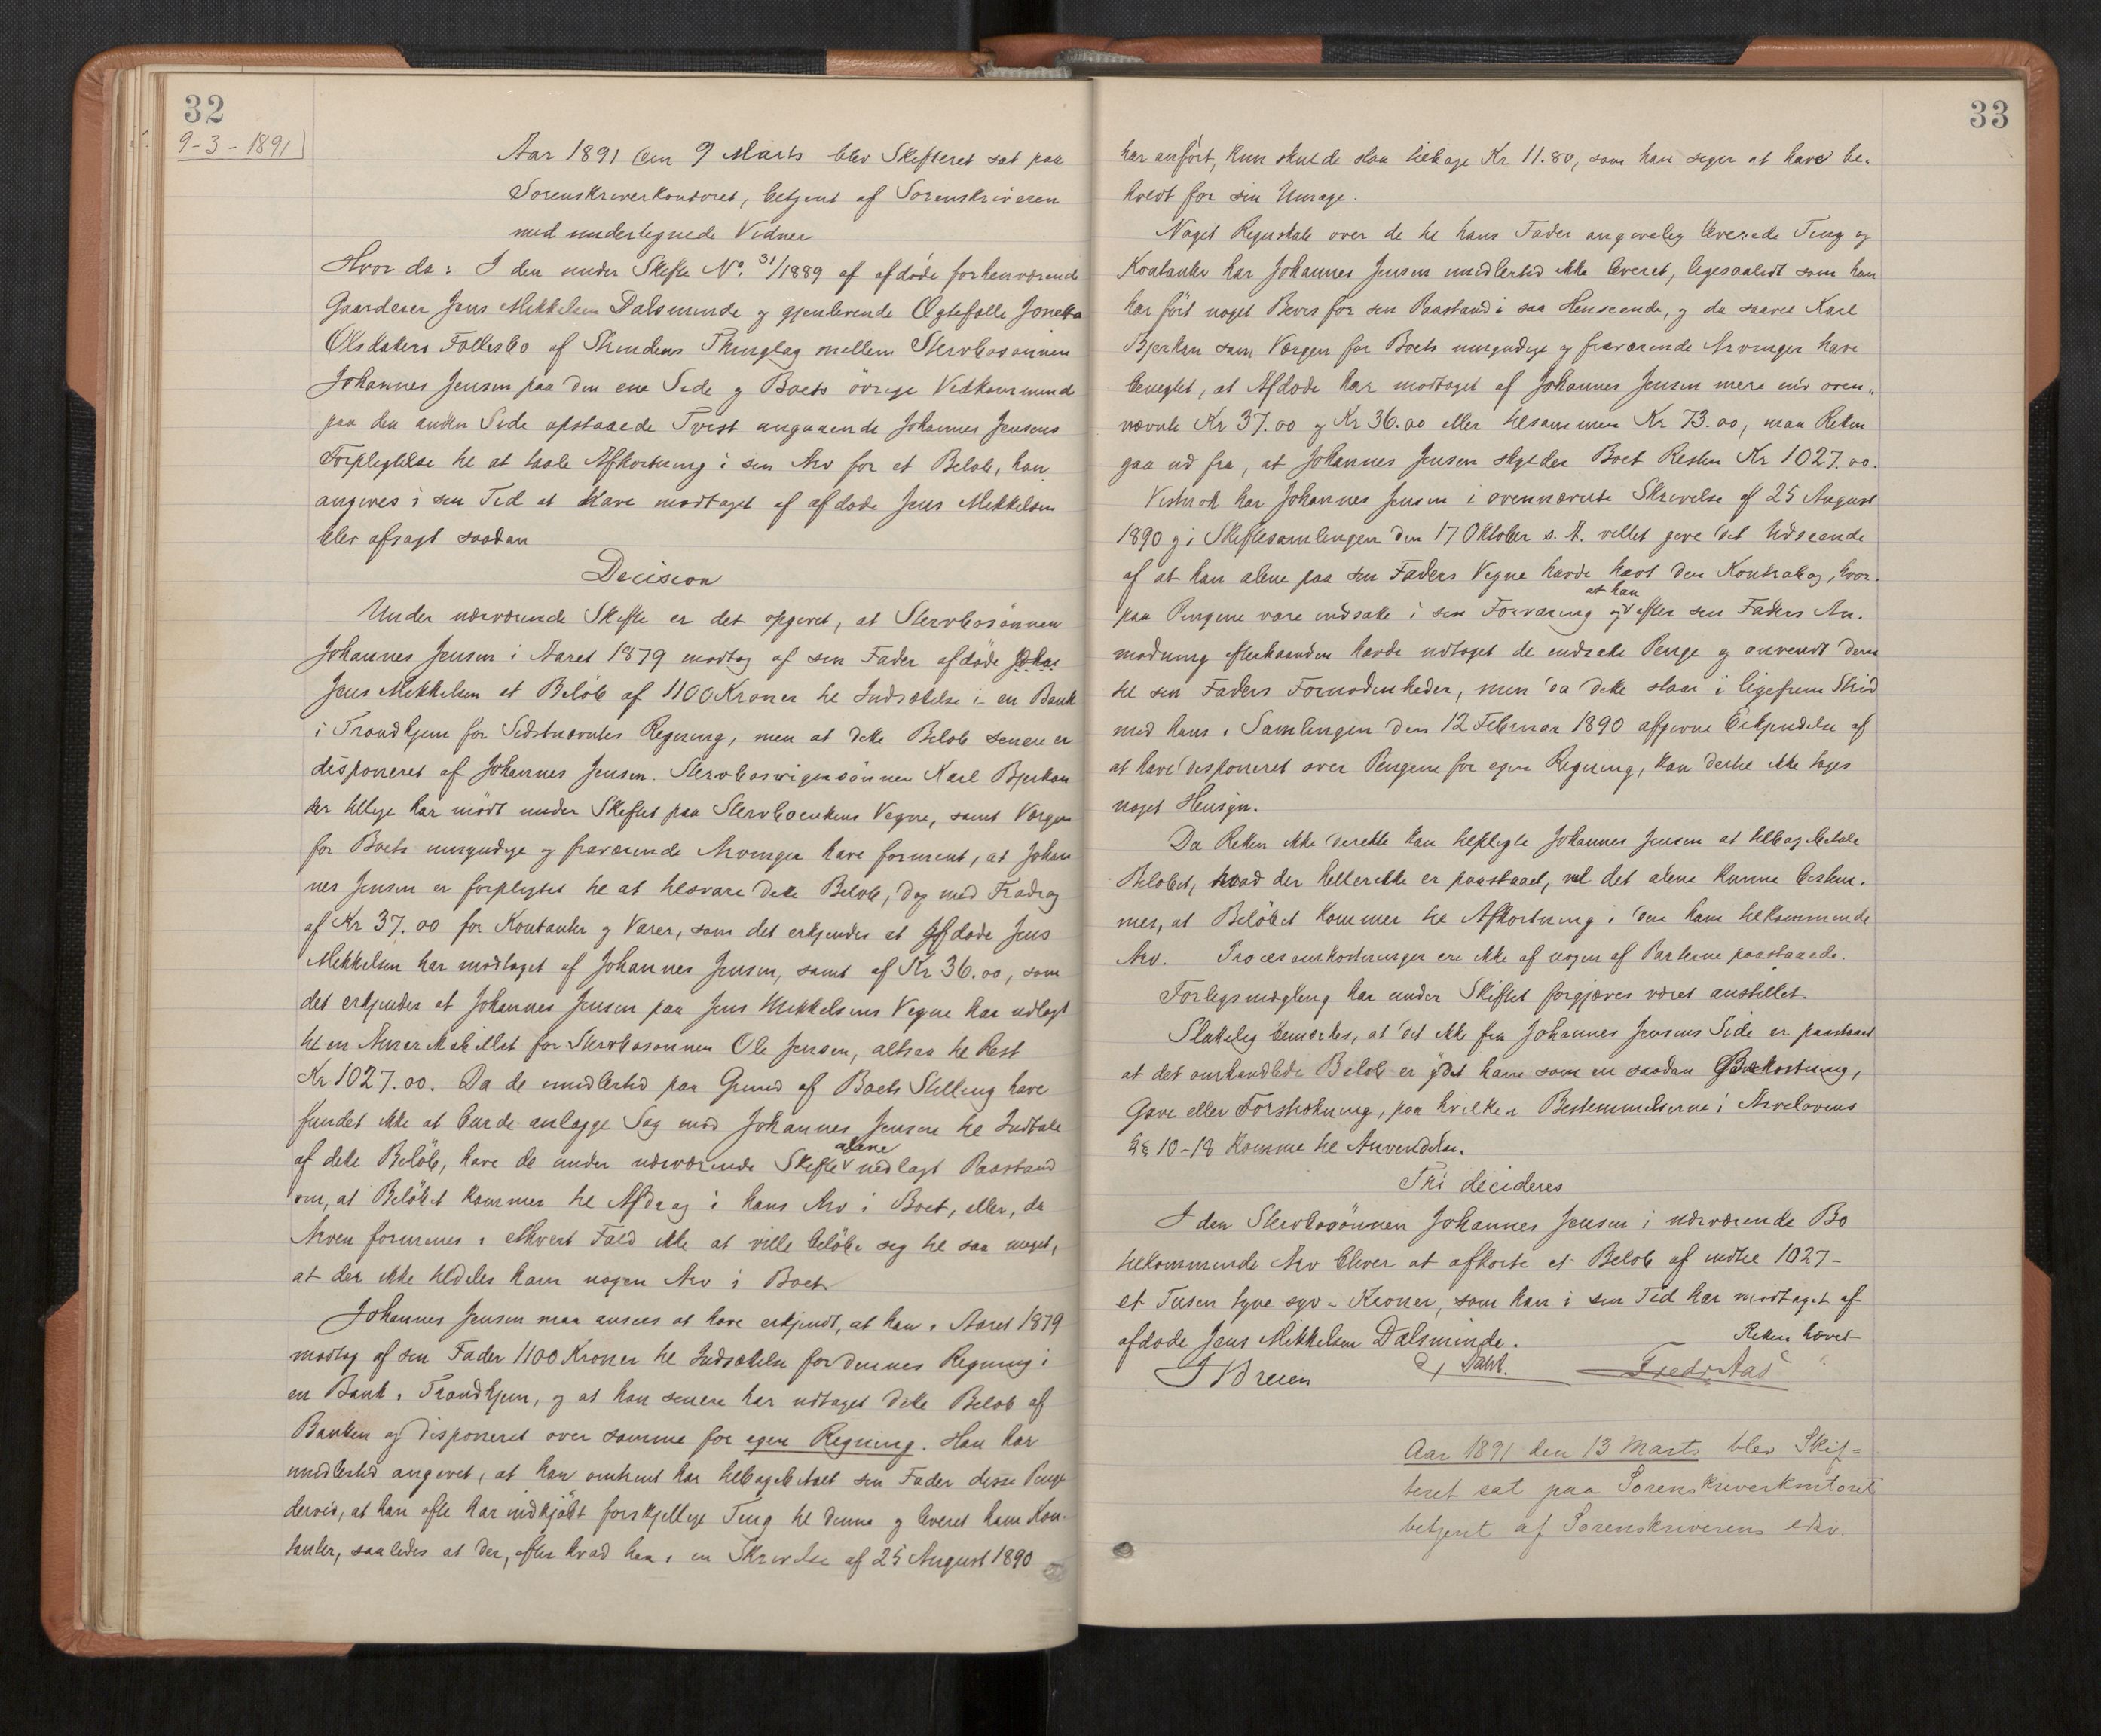 32
9-3-1891
Aar 1891 den 9 Marts blev Skifteret sat paa
Sorenskriverkontoret, betjent af Sorenskriveren
med undertegnede Vidner
Hvor da: I den under Skifte No. 31/1889 af afdöde forhenværende
Gaardeier Jens Mikkelsen Dalsminde og gjenlevende Ægtefælle Jonetta
Olsdatters Fællesbo af Strindens Thinglag mellem Stervbosönnen
Johannes Jensen paa den ene Side og Boets övrige Vedkommende
paa den anden Side opstaaede Tvist angaaende Johannes Jensens
Forpligtelse til at taale Afkortning i sin Arv for et Beløb, han
angives i sin Tid at have modtaget af afdöde Jens Mikkelsen
blev afsagt saadan
Decision
Under nærværende Skifte er det opgivet, at Stervbosönnen
Johannes Jensen i Aaret 1879 modtog af sin Fader afdöde Joha
Jens Mikkelsen et Belöb af 1100 Kroner til Indsættelse i en Bank
i Trondhjem for Sidstnævntes Regning, men at dette Beløb senere er
disponeret af Johannes Jensen. Stervbosvigersönnen Karl Bjerkan
der tillige har mödt under Skiftet paa Stervboenkens Vegne, samt Værgen
for Boets umyndige og fraværende Arvinger have forment, at Johan
nes Jensen er forpligtet til at tilsvare dette Beløb, dog med Fradrag
af Kr 37.00 for Kontanter og Varer, som det erkjendes at Afdöde Jens
Mikkelsen har modtaget af Johannes Jensen, samt af Kr 36.00, som
det erkjendes at Johannes Jensen paa Jens Mikkelsens Vegne har udlagt
til en Amerikabillet for Stervbosønnen Ole Jensen, altsaa til Rest
Kr 1027.00. Da de imidlertid paa Grund af Boets Stilling have
fundet ikke at burde anlægge Sag mod Johannes Jensen til Indtale
af dette Belöb, have de under nærværende Skifte alene nedlagt Paastand
om, at Belöbet kommer til Afdrag i hans Arv i Boet, eller, da
Arven formenes i ethvert Fald ikke at ville belöbe sig til saa meget,
at der ikke tildeles ham nogen Arv i Boet.
Johannes Jensen maa ansees at have erkjendt, at han i Aaret 1879
modtog af sin Fader 1100 Kroner til Indsættelse for dennes Regning i
en Bank i Trondhjem, og at han senere har udtaget dette Beløb af
Banken og disponeret over samme for egen Regning. Han har
imidlertid angivet, at han omtrent har tilbagebetalt sin Fader disse Penge
derved, at han ofte har indkjöbt forskjellige Ting til denne og leveret ham Kon-
tanter, saaledes at der, efter hvad han i en Skrivelse af 25 August 1890
33
har anfört, kun skulde staa tilbage Kr 11.80, som han siger at have be-
holdt for sin Umage.
Noget Regnskab over de til hans Fader angivelig leverede Ting og
Kontanter har Johannes Jensen imidlertid ikke leveret, ligesaalidt som han
har fört noget Bevis for sin Paastand i saa Henseende, og da saavel Karl
Bjerkan som Værgen for Boets umyndige og fraværende Arvinger have
benegtet, at Afdöde har modtaget af Johannes Jensen mere end oven-
nævnte Kr 37.00 og Kr 36.00 eller tilsammen Kr 73.00, maa Retten
gaa ud fra, at Johannes Jensen skylder Boet Resten Kr 1027.00.
Vistnok har Johannes Jensen i ovennævnte Skrivelse af 25 August
1890 og i Skiftesamlingen den 17 Oktober s. A. villet give det Udseende
af at han alene paa sin Faders Vegne havde havt den Kontrabog, hvor-
paa Pengene vare indsatte i sin Forvaring og at han efter sin Faders An-
modning efterhaanden havde udtaget de indsatte Penge og anvendt dem
til sin Faders Fornödenheder, men da dette staar i ligefrem Strid
med hans i Samlingen den 12 Februar 1890 afgivne Erkjendelse af
at have disponeret over Pengene for egen Regning, kan dertil ikke tages
noget Hensyn.
Da Retten ikke direkte kan tilpligte Johannes Jensen at tilbagebetale
Belöbet, hvad der heller ikke er paastaaet, vil det alene kunne bestem-
mes, at Belöbet kommer til Afkortning i den ham tilkommende
Arv. Procesomkostninger ere ikke af nogen af Parterne paastaaede.
Forligsmægling har under Skiftet forgjæves været anstillet.
Sluttelig bemærkes, at det ikke fra Johannes Jensens Side er paastaaet
at det omhandlede Beløb er ydet ham som en saadan Bekostning,
Gave eller Forstrækning, paa hvilken Bestemmelserne i Arvelovens
§§ 10-18 komme til Anvendelse.
Thi decideres
I den Stervbosönnen Johannes Jensen i nærværende Bo
tilkommende Arv bliver at afkorte et Beløb af indtil 1027 -
et Tusen tyve syv - Kroner, som han i sin Tid har modtaget af
afdöde Jens Mikkelsen Dalsminde.
Retten hævet
Dahl.
Fredr Aas
Aar 1891 den 13 Marts blev Skif=
teret sat paa Sorenskriverkontoret
betjent af Sorenskriverens edsv.